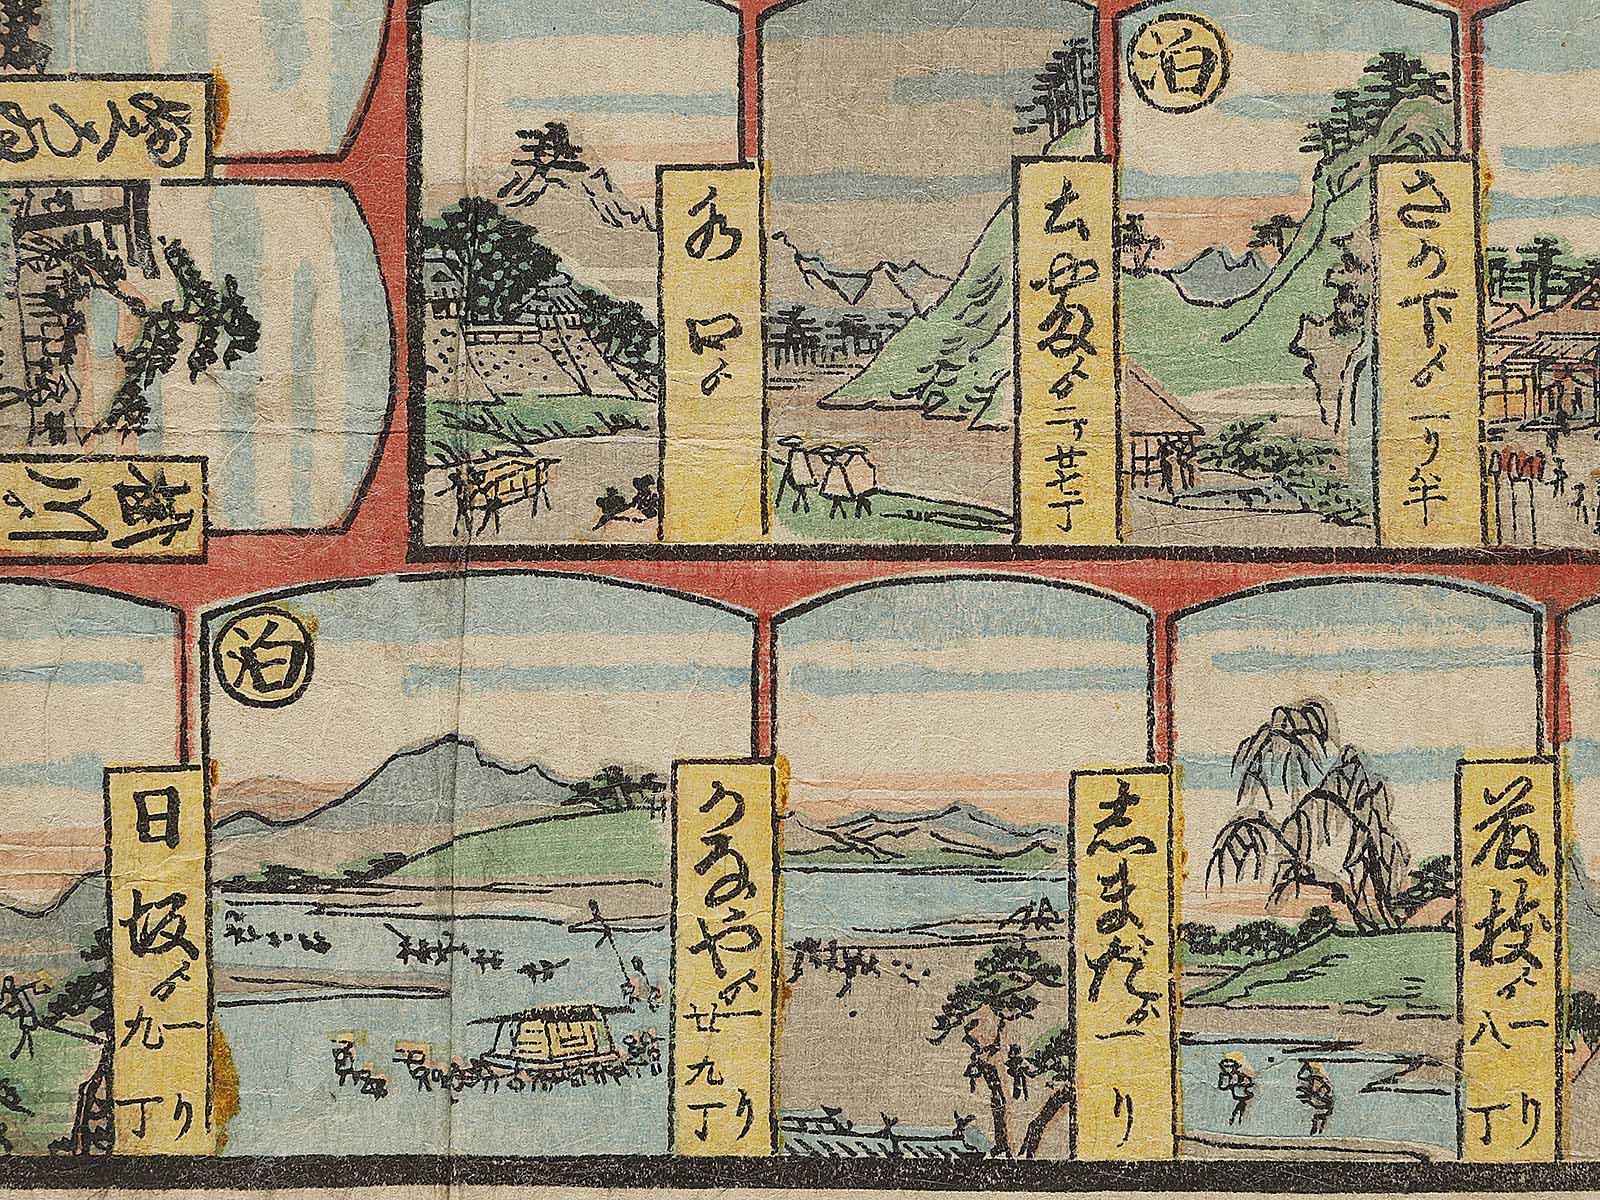 泊
さの下より一リ半
土山より二り廿七丁
水口より
藤枝より一リ八丁
志まだより一リ
かなやより一リ廿九丁
泊
日坂より一リ九丁